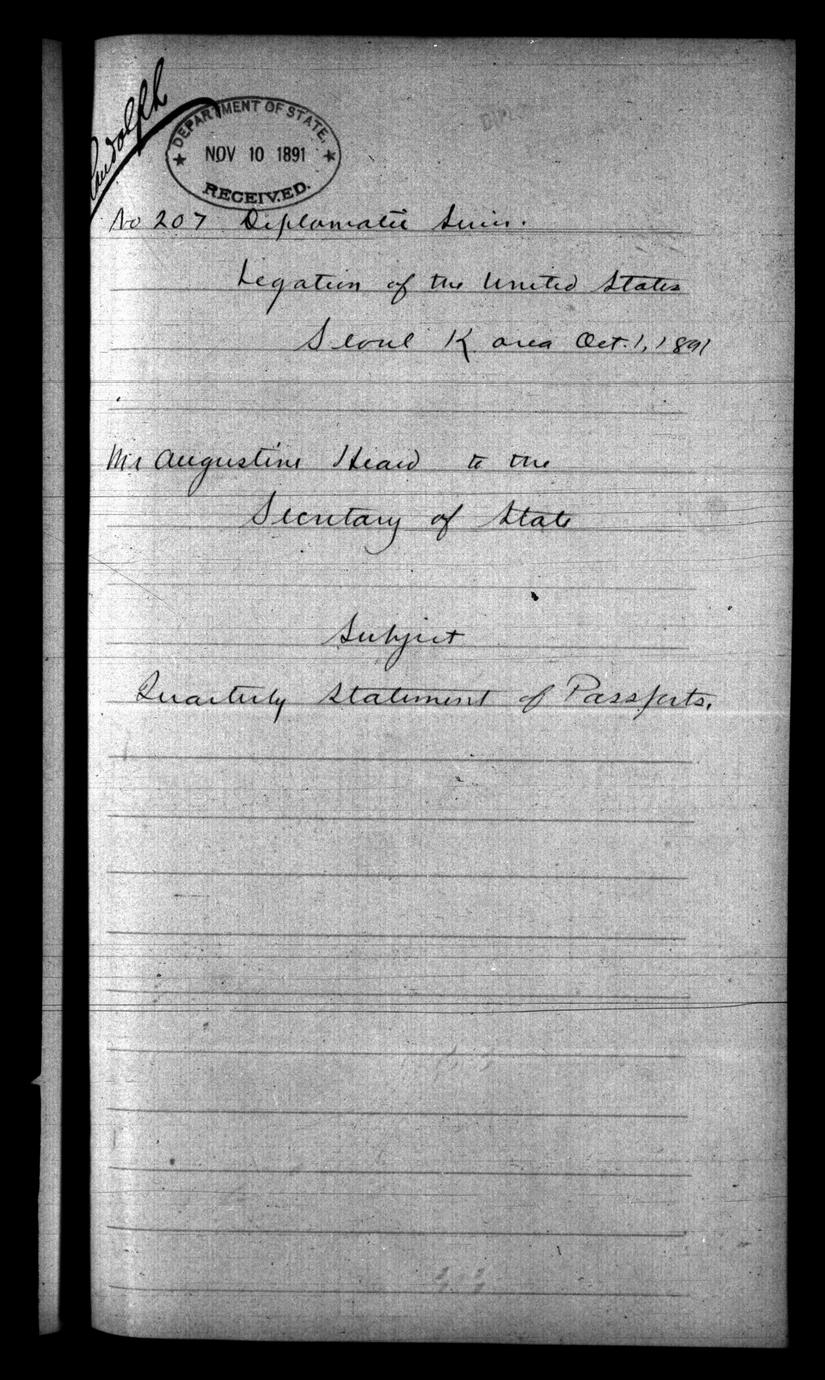 Rudolph
DEPARTMENT OF STATE.
NOV 10 1891
RECEIVED.
No 207 Diplomatic Series.
Legation of the United States
Seoul Korea Oct. 1, 1891
Mr Augustine Heard to the
Secretary of State
Subject
Quarterly Statement of Passports.